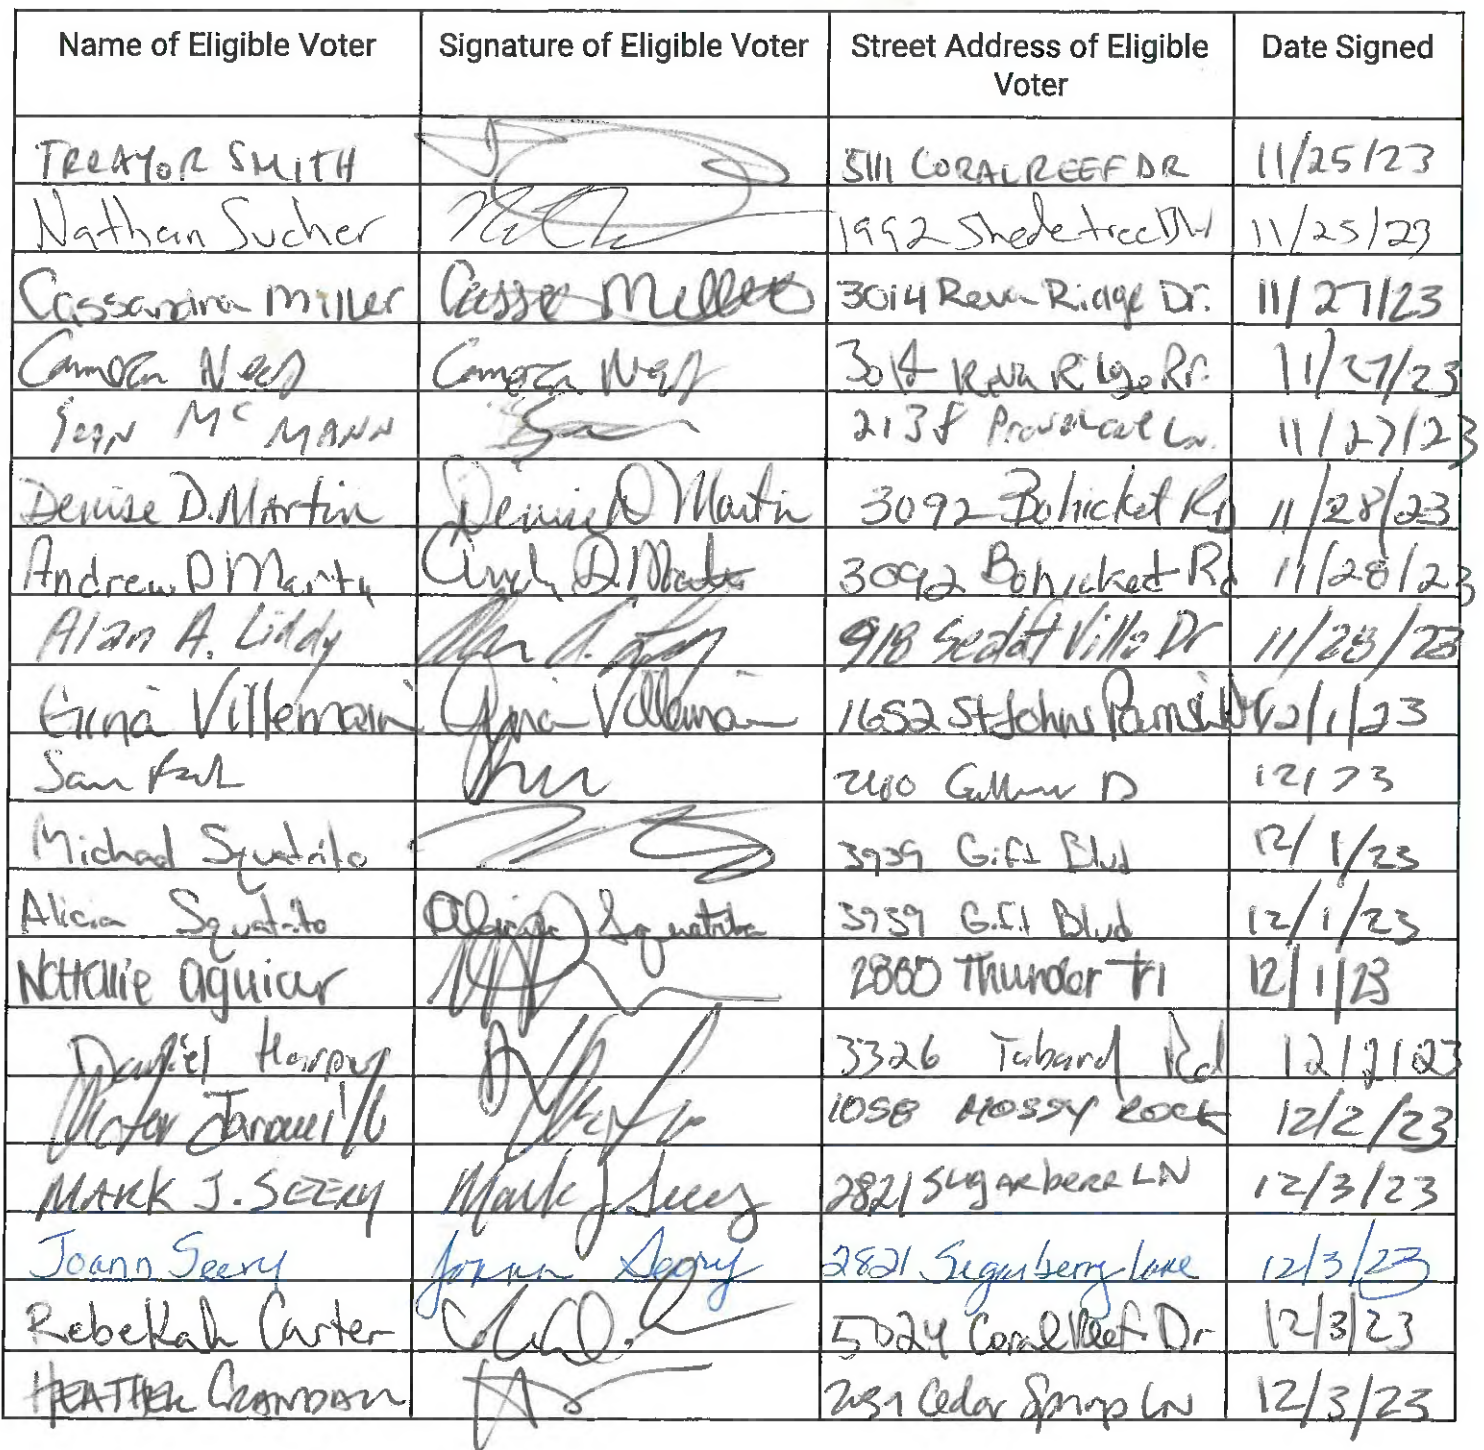 Name of Eligible Voter Signature of Eligible Voter Street Address of Eligible Voter Date Signed
TREAYOR SMITH 5111 CORAL REEF DR 11/25/23
Nathan Sucher 1992 Shadetree 11/25/23
Cassandra Miller 3014 Reva Ridge Dr. 11/27/23
Cameron 3014 Reva Ridge 11/27/23
Sean McMANN 2138 Provincial Ln. 11/27/23
Denise D. Martin Denise D Martin 3092 Bohicket Rd 11/28/23
Andrew D Martin 3092 Bohicket Rd 11/28/23
Alan A. Liddy 918 Sedaft Villa Dr 11/28/23
Gina Villemain Gina Villemain 1652 St Johns Parrish 12/1/23
Sam 12/ 23
Michael Squatrito 3939 Gift Blvd 12/1/23
Alicia Squatrito Alicia Squatrito 3939 Gift Blvd 12/1/23
Nathalie aguiar 2880 Thunder Trl 12/1/23
Daniel 3326 Tabard Rd 12/2/23
Jaramillo 1058 MOSSY ROCK 12/2/23
MARK J. SEERY Mark J Seery 2821 Sugarberr LN 12/3/23
Joann Seery Joann Seery 2821 Sugarberry Lane 12/3/23
Rebekah Carter 5024 Coral Reef Dr 12/3/23
HEATHER CRANDALL Cedar Springs LN 12/3/23